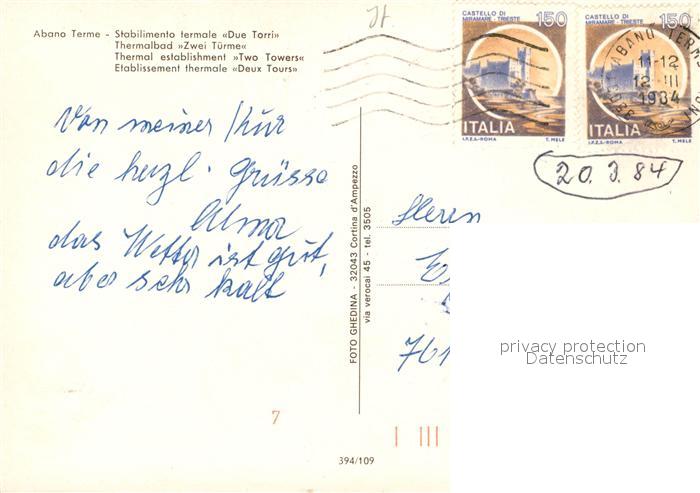 It
Abano Terme - Stabilimento termale «Due Torri»
Thermalbad »Zwei Türme«
Thermal establishment »Two Towers«
Etablissement thermale «Deux Tours»
CASTELLO DI MIRAMARE - TRIESTE 150
ITALIA
I.P.Z.S.-ROMA T. MELE
CASTELLO DI MIRAMARE - TRIESTE 150
ITALIA
I.P.Z.S.-ROMA T. MELE
ABANO TERME
11-12
12 III
1984
20. 3. 84
Von meiner Kur
die herzl. Grüsse
Alma
das Wetter ist gut,
aber sehr kalt
FOTO GHEDINA - 32043 Cortina d'Ampezzo
via verocai 45 - tel. 3505
Herrn
761
privacy protection
Datenschutz
7
394/109